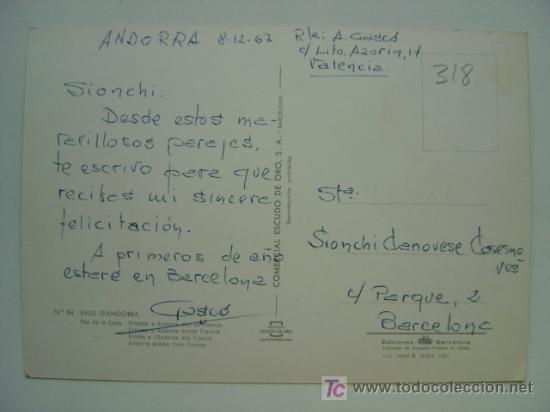 ANDORRA 8-12-62
Rte: A. Gascó
c/ Lito. Azorín, 14
Valencia
318
Sionchi:
Desde estos ma-
ravillosos parajes,
te escribo para que
recibas mi sincera
felicitación.
A primeros de año
estaré en Barcelona
Gascó
Nº 84 VALLS D'ANDORRA
Pas de la Casa
Entrada a Andorra desde Francia
Entrée a l'Andorre dès France
Andorra entree from France
COMERCIAL ESCUDO DE ORO, S. A. - BARCELONA
Reproducción prohibida
Sta.
Sionchi Canovese Casasno-
vas
c/ Parque, 2
Barcelona
Ediciones Barcelona
TC www.todocoleccion.net